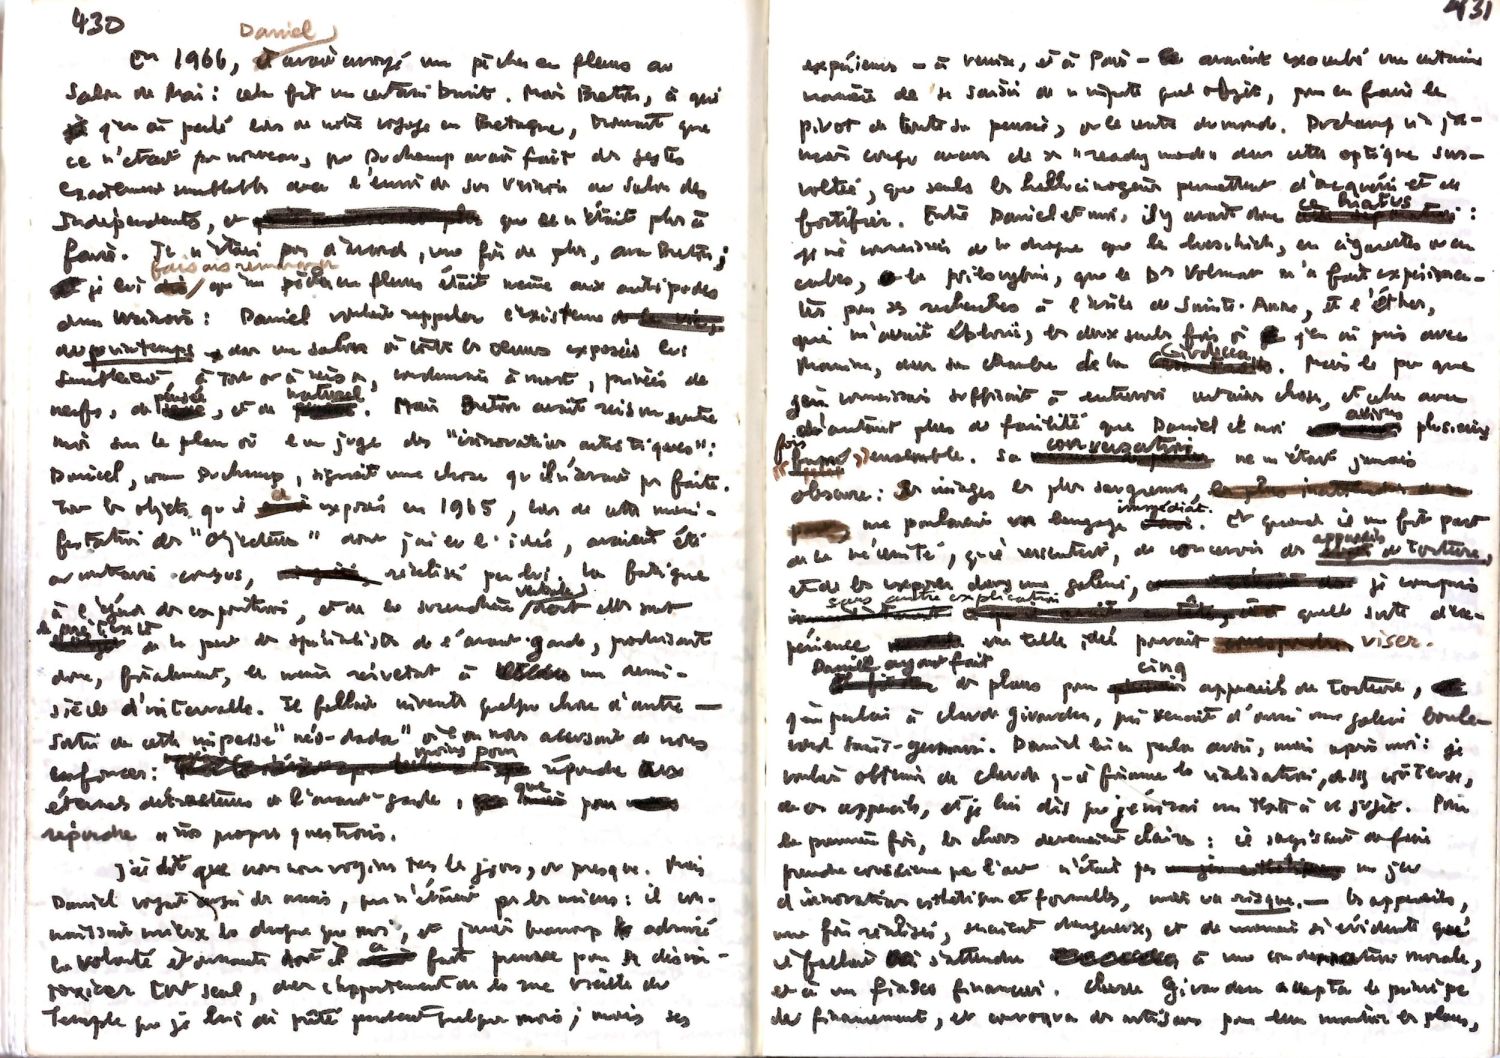 430
Daniel
En 1966, avait envoyé un pêcher en fleurs au
Salon de Mai : cela fit un certain bruit. Mais Breton, à qui
j'en ai parlé lors de notre voyage en Bretagne, trouvait que
ce n'était pas nouveau, que Duchamp avait fait des gestes
exactement semblables avec l'envoi de son Urinoir au Salon des
Indépendants, et que ce n'était plus à
faire. Je n'étais pas d'accord, une fois de plus, avec Breton ;
faisais remarquer
je lui qu'un pêcher en fleurs était même aux antipodes
d'un Urinoir : Daniel voulait rappeler l'existence
du printemps dans un salon où toutes les œuvres exposées lui
semblaient, à tort ou à raison, condamnées à mort, privées de
pensée naturel
nerfs, de , et de . Mais Breton avait raison contre
moi sur le plan où l'on juge des "innovations artistiques" :
Daniel, comme Duchamp, signait une chose qu'il n'avait pas faite.
a
Tous les objets qu'il exposés en 1965, lors de cette mani-
festation des "Objecteurs" dont j'ai eu l'idée, avaient été
au contraire conçus, réalisés par lui. La fatigue
verbale
à l'égard des expositions, et de la surenchère dont elles sont
le prétexte
de la part des spécialistes de l'avant-garde, produisait
donc, finalement, le même résultat à un demi-
siècle d'intervalle. Il fallait inventer quelque chose d'autre —
sortir de cette impasse "néo-dada" où l'on nous accusait de nous
moins pour
enfoncer : répondre aux
que
éternels détracteurs de l'avant-garde, pour
répondre à nos propres questions.
J'ai dit que nous nous voyions tous les jours, ou presque. Mais
Daniel voyait aussi des amis, qui n'étaient pas les miens : il con-
naissait mieux la drogue que moi, et j'avais beaucoup admiré
a
la volonté étonnante dont il fait preuve pour se désin-
toxiquer tout seul, dans l'appartement de la rue Vieille du
Temple que je lui ai prêté pendant quelques mois ; mais ses
431
expériences — à Venise, et à Paris — avaient exacerbé une certaine
manière de se saisir de n'importe quel objet, pour en faire le
pivot de toute sa pensée, ou le centre du monde. Duchamp n'a ja-
mais conçu aucun de ses "ready made" dans cette optique sur-
voltée, que seuls les hallucinogènes permettent d'acquérir et de
ce hiatus
fortifier. Entre Daniel et moi, il y avait donc :
je ne connaissais de la drogue que le haschich, en cigarettes ou en
cubes, la psilocybine, que le Dr Volmat m'a fait expérimen-
ter pour ses recherches à l'asile de Sainte-Anne, et l'éther,
qui m'avait ébloui, les deux seules fois où j'en ai pris avec
Giudecca
Manina, dans sa chambre de la . Mais le peu que
j'en connaissais suffisait à entrevoir certaines choses, et cela avec
avions
d'autant plus de facilité que Daniel et moi plusieurs
fois
"fumé" ensemble. Sa
conversation
ne m'était jamais
obscure : Les images les plus saugrenues,
immédiat.
me parlaient un langage . Et quand il me fit part
appareils
de la nécessité, qu'il ressentait, de concevoir des de torture,
et de les exposer dans une galerie, je compris
sans autre explication
quelle sorte d'ex-
périence une telle idée pouvait viser.
Daniel ayant fait cinq
des plans pour appareils de torture,
j'en parlai à Claude Givaudan, qui venait d'ouvrir une galerie boule-
vard Saint-Germain. Daniel lui en parla aussi, mais après moi : je
voulais obtenir de Claude qu'il finance la réalisation,
de ces appareils, et je lui dis que j'écrirais un texte à ce sujet. Pour
la première fois, les choses devenaient claires : il s'agissait de faire
prendre conscience que l'art n'était pas un jeu
d'innovations esthétiques et formelles, mais un risque. — Les appareils,
une fois réalisés, seraient dangereux, et de manière si évidente qu'il
fallait s'attendre à une condamnation morale,
et à un fiasco financier. Claude Givaudan accepta le principe
de financement, et convoqua des artisans pour leur montrer les plans,